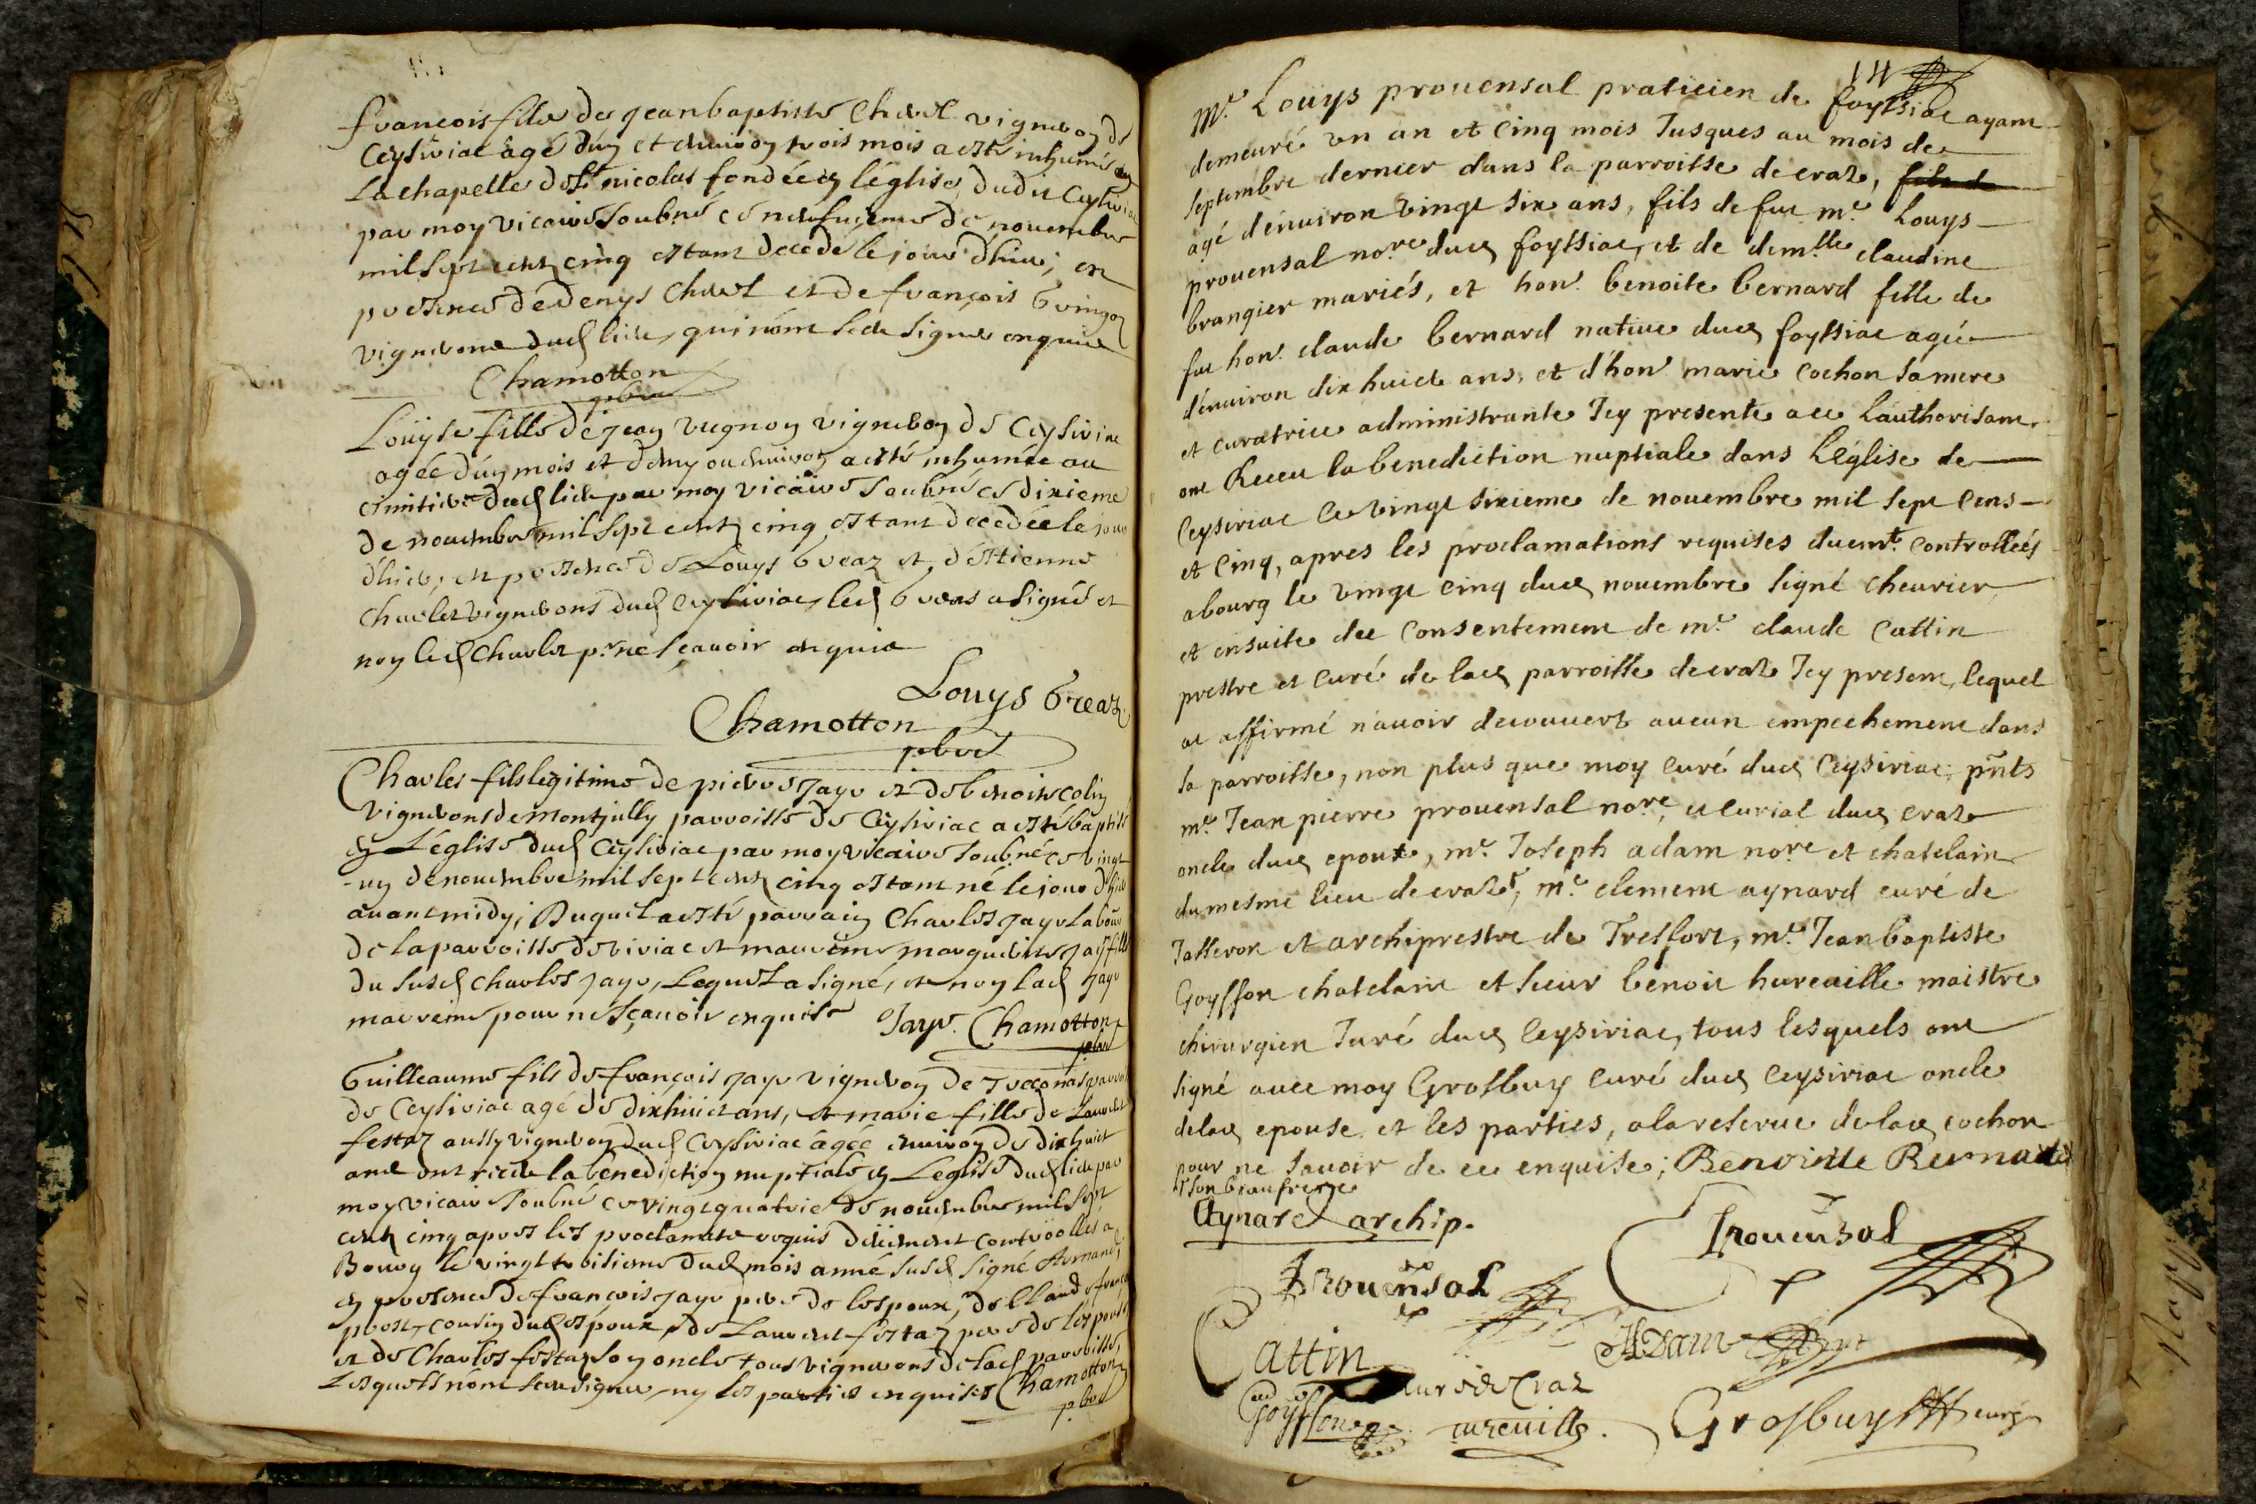 françois fils de jeanbaptiste Chevl vigneron de
Ceysiriac âgé d'un et environ trois mois a esté inhumé en
La chapelle de St nicolas fondée en l'église dudit Ceysiriac
par moy vicaire soubné ce neufvieme de novembre
mil sept cents cinq estant decedé le jour d'hier; en
presence de Denys Chevl et de françois Gringoz
vignerons dud lieu, qui n'ont sceu signer enquis
Chamotton
pbre
Louyse fille de jean vugnon vigneron de Ceysiriac
agée d'un mois et demy ou environ a esté inhumée au
cimitiere dud lieu par moy vicaire soubné ce dixieme
de novembre mil sept cents cinq estant decedée le jour
d'hier; en presence de Louys Greaz et d'éstienne
Charlet vignerons dud Ceysiriac, led Greas a signé et
non led Charlet pr ne sçavoir enquis
Louys Greaz
Chamotton
pbre
Charles fils legitime de pierre Jayr et de benoite colin
vignerons de montjully parroisse de Ceysiriac a esté baptisé
en L'église dud Ceysiriac par moy vicaire soubné ce vingt
-un de novembre mil sept cents cinq estant né le jour d'hier
avant midy; Duquel a esté parrain Charles Jayr Labour
de la parroisse de iriac et marreine marguerite Jayr fille
du susd Charles Jayr, Lequel a signé, et non lad Jayr
marreine pour ne sçavoir enquise Jayr. Chamotton
pbre
Guilleaume fils de françois Jayr vigneron de Jucconas parroisse
de Ceysiriac agé de dixhuict ans, et marie fille de Laurent
festaz aussy vigneron dud Ceysiriac âgée environ de dixhuict
ans ont receu la benediction nuptiale en Leglise dud lieu par
moy vicaire soubné ce vingtquatrie de novembre mil sept
cents cinq apres les proclamats requis düement controollés a
Bourg le vingt troisieme dud mois année susd signé
en presence de françois Jayr pere de l'espoux, de Claude françois
prost, cousin dud espoux, de Laurent festaz pere de l'espouse
et de Charles festaz son oncle tous vignerons de lad parroisse,
Lesquels n'ont sceu signer, ny les parties enquises Chamotton
pbre
14
Me. Louys provensal praticien de foyssiac ayant
demeuré un an et cinq mois Jusques au mois de
septembre dernier dans la parroisse de craz, fils de
agé d'environ vingt six ans, fils de fut me. Louys
provensal nore dud foyssiac, et de demlle claudine
brangier mariés, et hone. benoite bernard fille de
fut hone. claude bernard native dud foyssiac agée
d'environ dix huict ans, et d'hone. marie cochon sa mere
et curatrice administrante Icy presente et L'authorisant
ont Receu la benediction nuptiale dans L'église de
Ceysiriac ce vingt sixieme de novembre mil sept cens
et cinq, apres les proclamations requises duemt. controllées
a bourg le vingt cinq dud novembre signé chevrier
et ensuite du consentement de me. claude cattin
prestre et curé de lad parroisse de craz Icy present, lequel
at affirmé n'avoir decouvert aucun empechement dans
sa parroisse, non plus que moy curé dud Ceysiriac, pnts
me. Jean pierre provensal nore, et curial dud craz
oncle dud epoux, me. Joseph adam nore et chatelain
du mesme lieu de craz, me. clement aynard curé de
Jasseron et archiprestre de Tresfort, me. Jean baptiste
Goysson chatelain et sieur benoit hureville maistre
chirurgien Juré dud Ceysiriac, tous lesquels ont
signé avec moy Grosbuy curé dud Ceysiriac oncle
de lad epouse et les parties, a la reserve de lad cochon
pour ne savoir de ce enquise; Benoiste Bernarde
et son beaufrere
Aynard archip.
Provensal
Provensal
Cattin
curé de Craz
Adam
Goysson
hureville.
Grosbuy curé